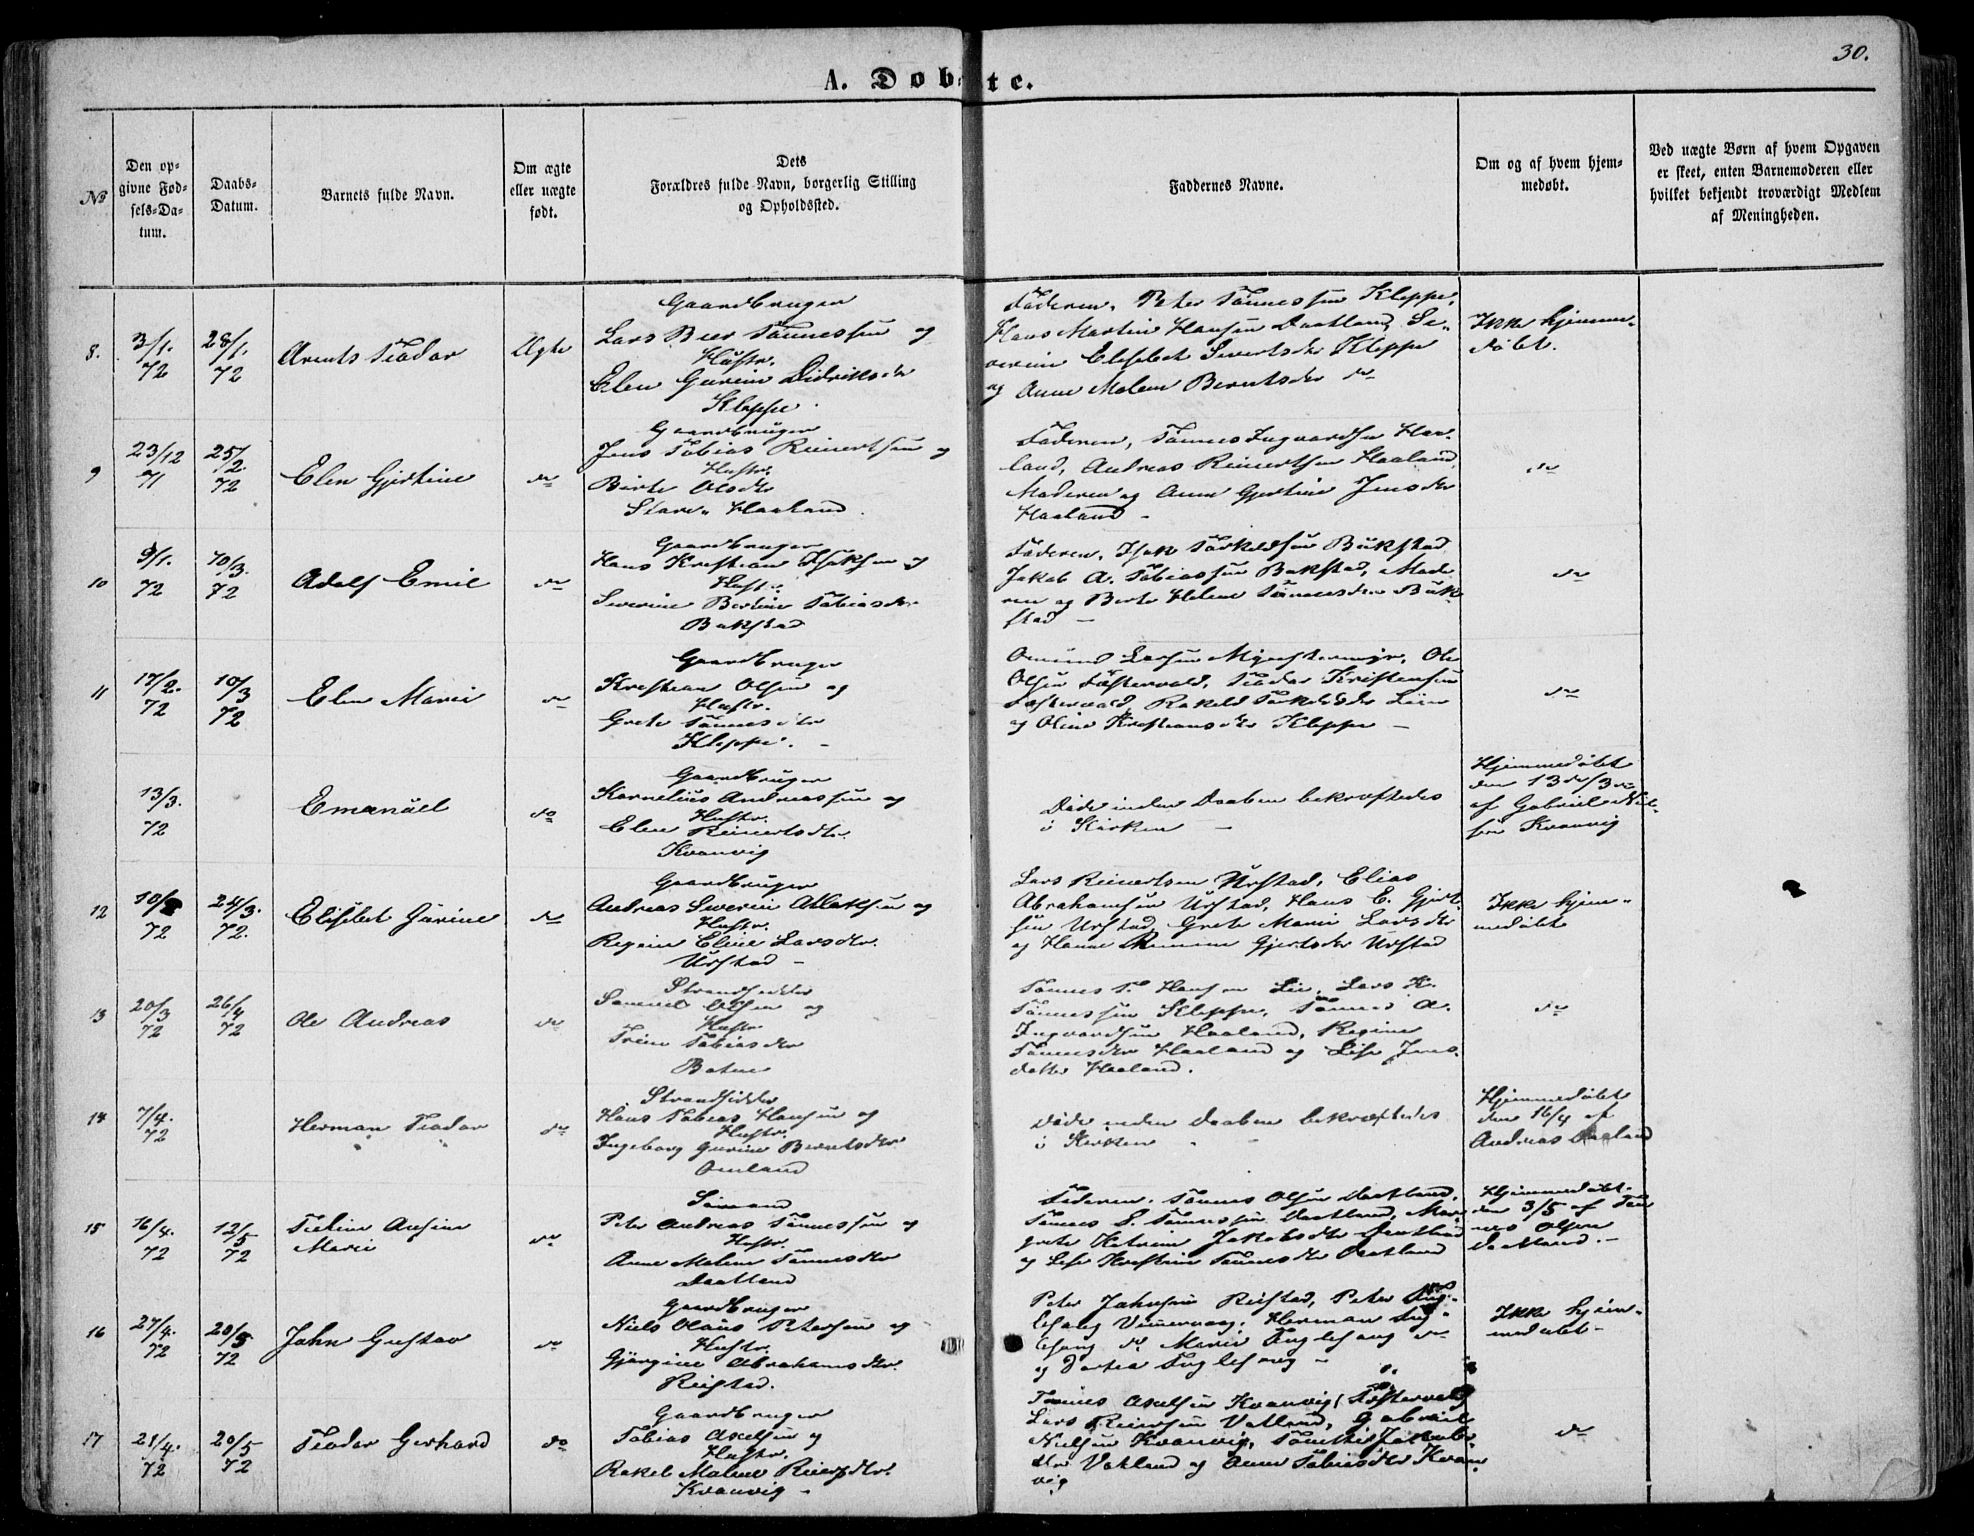 30.
A. Døbte.
No
Den op-
givne Fød-
sels-Da-
tum.
Daabs-
Datum.
Barnets fulde Navn.
Om ægte
eller uægte
født.
Dets
Forældres fulde Navn, borgerlig Stilling
og Opholdssted.
Faddernes Navne.
Om og af hvem hjem-
medøbt.
Ved uægte Børn af hvem Opgaven
er skeet, enten Barnemoderen eller
hvilket bekjendt troværdigt Medlem
af Menigheden.
8.
3/1.
72
28/1.
72
Arents Teodor
Ægte
Gaardbruger
Lars Beer Tønnessen og
Hustr.
Elen Gurine Didriksdtr
Kleppe.
Faderen, Peter Tønnessen Kleppe,
Hans Martin Hansen Daatland, Se-
verine Elisabet Severtsdtr Kleppe
og Anne Malene Berntsdtr do
Ikke hjemme-
døbt.
9
23/12
71
25/2.
72
Elen Gjertine
do
Gaardbruger
Jens Tobias Reinertsen og
Hustr.
Birte Olsdtr
Store-Haaland.
Faderen, Tønnes Ingvardsen Haa-
land, Andreas Reinertsen Haaland,
Moderen og Anne Gjertine Jensdtr
Haaland -
do
10
9/1.
72
10/3.
72
Adolf Emil
do
Gaardbruger
Hans Kristian Isaksen og
Hust.
Severine Bertine Tobiasdtr
Bukstad
Faderen, Isak Torkildsen Bukstad
Jakob A. Tobiassen Bukstad, Mode-
ren og Berte Helene Tønnesdtr Buk-
stad -
do
11
17/2.
72
10/3
72
Elen Marie
do
Gaardbruger
Kristian Olsen og
Hustr.
Grete Tønnesdtr
Kleppe. -
Omund Larsen, Ole
Olsen Fæstervold, Teodor Kristensen
Fæstervold, Rakeld Torkildsdtr Leire
og Oline Kristiansdtr Kleppe -
do
13/3.
72
Emanüel
do
Gaardbruger
Kornelius Andreassen og
Hustr.
Elen Reinertsdtr.
Kvanvig
Døde inden Daaben bekræftedes
i Kirken -
Hjemmedøbt
den 13de/3
af Gabriel Niel-
sen Kvanvig
12
10/
72
24/3.
72.
Elisbet Gurine
do
Gaardbruger
Andreas Severin Atlaksen og
Hustr.
Regine Eline Larsdtr.
Urstad -
Lars Reinertsen Urstad, Elias
Abrahamsen Urstad, Hans E. Gjert-
sen Urstad, Grete Marie Larsdtr
og Hanne Gjertsdtr Urstad
Ikke hjem-
medøbt
13
20/3
72
26/4
72
Ole Andreas
do
Strandsidder
Samuel Olsen og
Hustr
Trine Tobiasdtr
Botne
Tønnes T. Hansen Lie, Lars K.
Tønnessen Kleppe, Tønnes A.
Ingvardsen Haaland, Regine
Tønnesdtr Haaland og Lise Jens-
datter Haaland.
do
14
7/4.
72
Herman Teodor
do
Strandsidder
Hans Tobias Hansen og
Hustr.
Ingeborg Gurine Berntsdtr.
Omland
Døde inden Daaben bekræftedes
i Kirken
Hjemmedøbt
den 16/4 af
Andreas Haaland
15
16/4.
72
12/5
72
Marie
do
Sømand
Peter Andreas Tønnessen og
Hustr.
Anne Malene Tønnesdtr
Daatland
Faderen, Tønnes Olsen Daatland,
Tønnes S. Tønnessen Daatland, Mar-
grete Katrine Jakobsdtr Daatland
og Lise Kristine Tønnesdtr Daatland
Hjemmedøbt
den 3/5 af Tøn-
nes Olsen
Daatland. -
16
27/4.
72
20/5
72
John Gustav
do
Gaardbruger
Niels Olaus Petersen og
Hustr.
Gjørgine Abrahamsdtr.
Reistad.
Peter Johnsen Reistad, Peter Fug-
lesang, Herman Fug-
lesang do Marie Fuglesang do
og Dortea Fuglesang -
Ikke hjem-
medøbt -
17
21/4.
72
20/5
72
Teodor Gerhard
do
Gaardbruger
Tobias Axelsen og
Hustr.
Rakel Malene Reiersdtr.
Kvanvig -
Tønnes Axelsen Kvanvig, Fæstervold
Lars Reiersen Vatland, Gabriel
Nielsen Kvanvig, Jakobs-
dtr Vatland og Anne Tobiasdtr Kvan-
vig
do